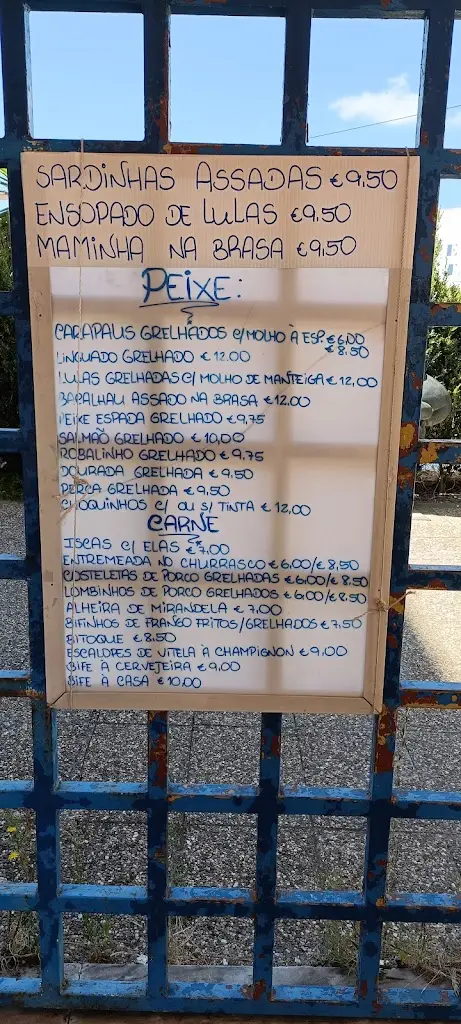 SARDINHAS ASSADAS € 9.50
ENSOPADO DE LULAS €9.50
MAMINHA NA BRASA €9,50
PEIXE:
CARAPAUS GRELHADOS C/MOLHO À ESP. € 6.00
€ 8.50
LINGUADO GRELHADO € 12.00
LULAS GRELHADAS C/ MOLHO DE MANTEIGA € 12,00
BACALHAU ASSADO NA BRASA € 12.00
PEIXE ESPADA GRELHADO € 9,75
SALMÃO GRELHADO € 10,00
ROBALINHO GRELHADO € 9.75
DOURADA GRELHADA € 9,50
PERCA GRELHADA € 9,50
CHOQUINHOS C/ OU S/ TINTA € 12,00
CARNE
ISCAS C/ ELAS € 7,00
ENTREMEADA NO CHURRASCO € 6.00/€ 8,50
COSTELETAS DE PORCO GRELHADAS € 6.00/€ 8.50
LOMBINHOS DE PORCO GRELHADOS € 6.00/€ 8.50
ALHEIRA DE MIRANDELA € 7.00
BIFINHOS DE FRANGO FRITOS/GRELHADOS € 7,50
BITOQUE € 8.50
ESCALOPES DE VITELA À CHAMPIGNON € 9,00
BIFE À CERVEJEIRA € 9,00
BIFE À CASA € 10.00